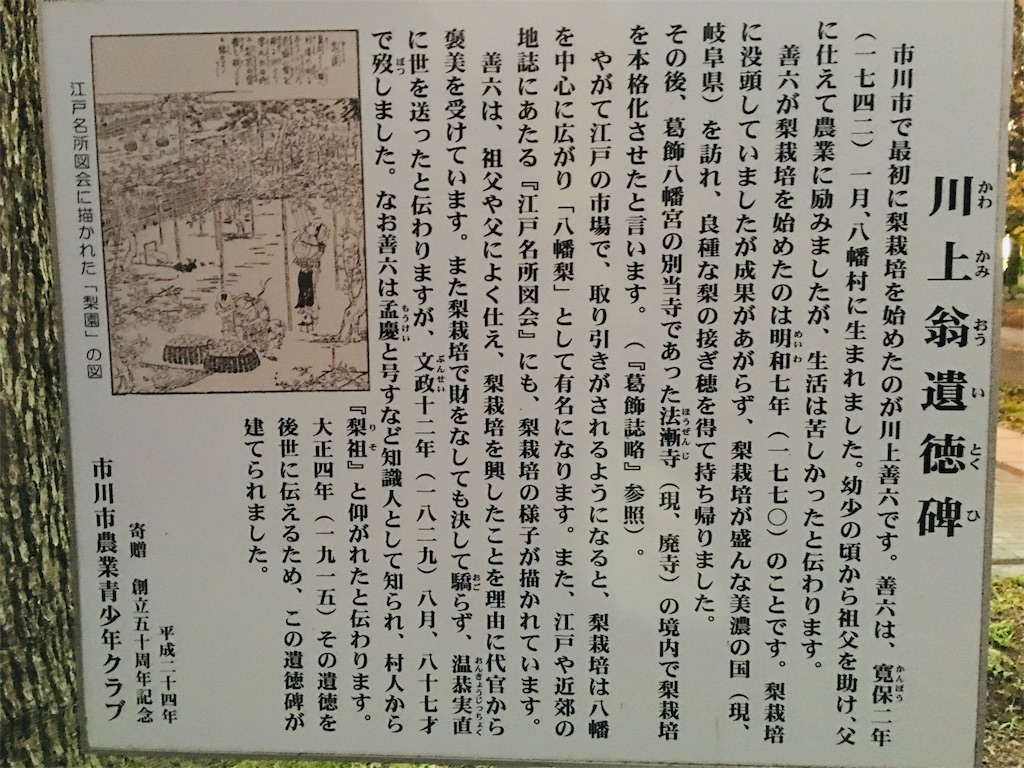 川上翁遺徳碑
かわ かみ おう い とく ひ
市川市で最初に梨栽培を始めたのが川上善六です。善六は、寛保二年
かんぽう
（一七四二）一月、八幡村に生まれました。幼少の頃から祖父を助け、父
に仕えて農業に励みましたが、生活は苦しかったと伝わります。
善六が梨栽培を始めたのは明和七年（一七七〇）のことです。梨栽培
めいわ
に没頭していましたが成果があがらず、梨栽培が盛んな美濃の国（現、
岐阜県）を訪れ、良種な梨の接ぎ穂を得て持ち帰りました。
その後、葛飾八幡宮の別当寺であった法漸寺（現、廃寺）の境内で梨栽培
ほうぜんじ
を本格化させたと言います。（『葛飾誌略』参照）。
やがて江戸の市場で、取り引きがされるようになると、梨栽培は八幡
を中心に広がり「八幡梨」として有名になります。また、江戸や近郊の
地誌にあたる『江戸名所図会』にも、梨栽培の様子が描かれています。
善六は、祖父や父によく仕え、梨栽培を興したことを理由に代官から
褒美を受けています。また梨栽培で財をなしても決して驕らず、温恭実直
おご おんきょうじっちょく
に世を送ったと伝わりますが、文政十二年（一八二九）八月、八十七才
ぶんせい
で歿しました。なお善六は孟慶と号すなど知識人として知られ、村人から
ぼつ もうけい
『梨祖』と仰がれたと伝わります。
りそ
大正四年（一九一五）その遺徳を
後世に伝えるため、この遺徳碑が
建てられました。
平成二十四年
寄贈 創立五十周年記念
市川市農業青少年クラブ
江戸名所図会に描かれた「梨園」の図